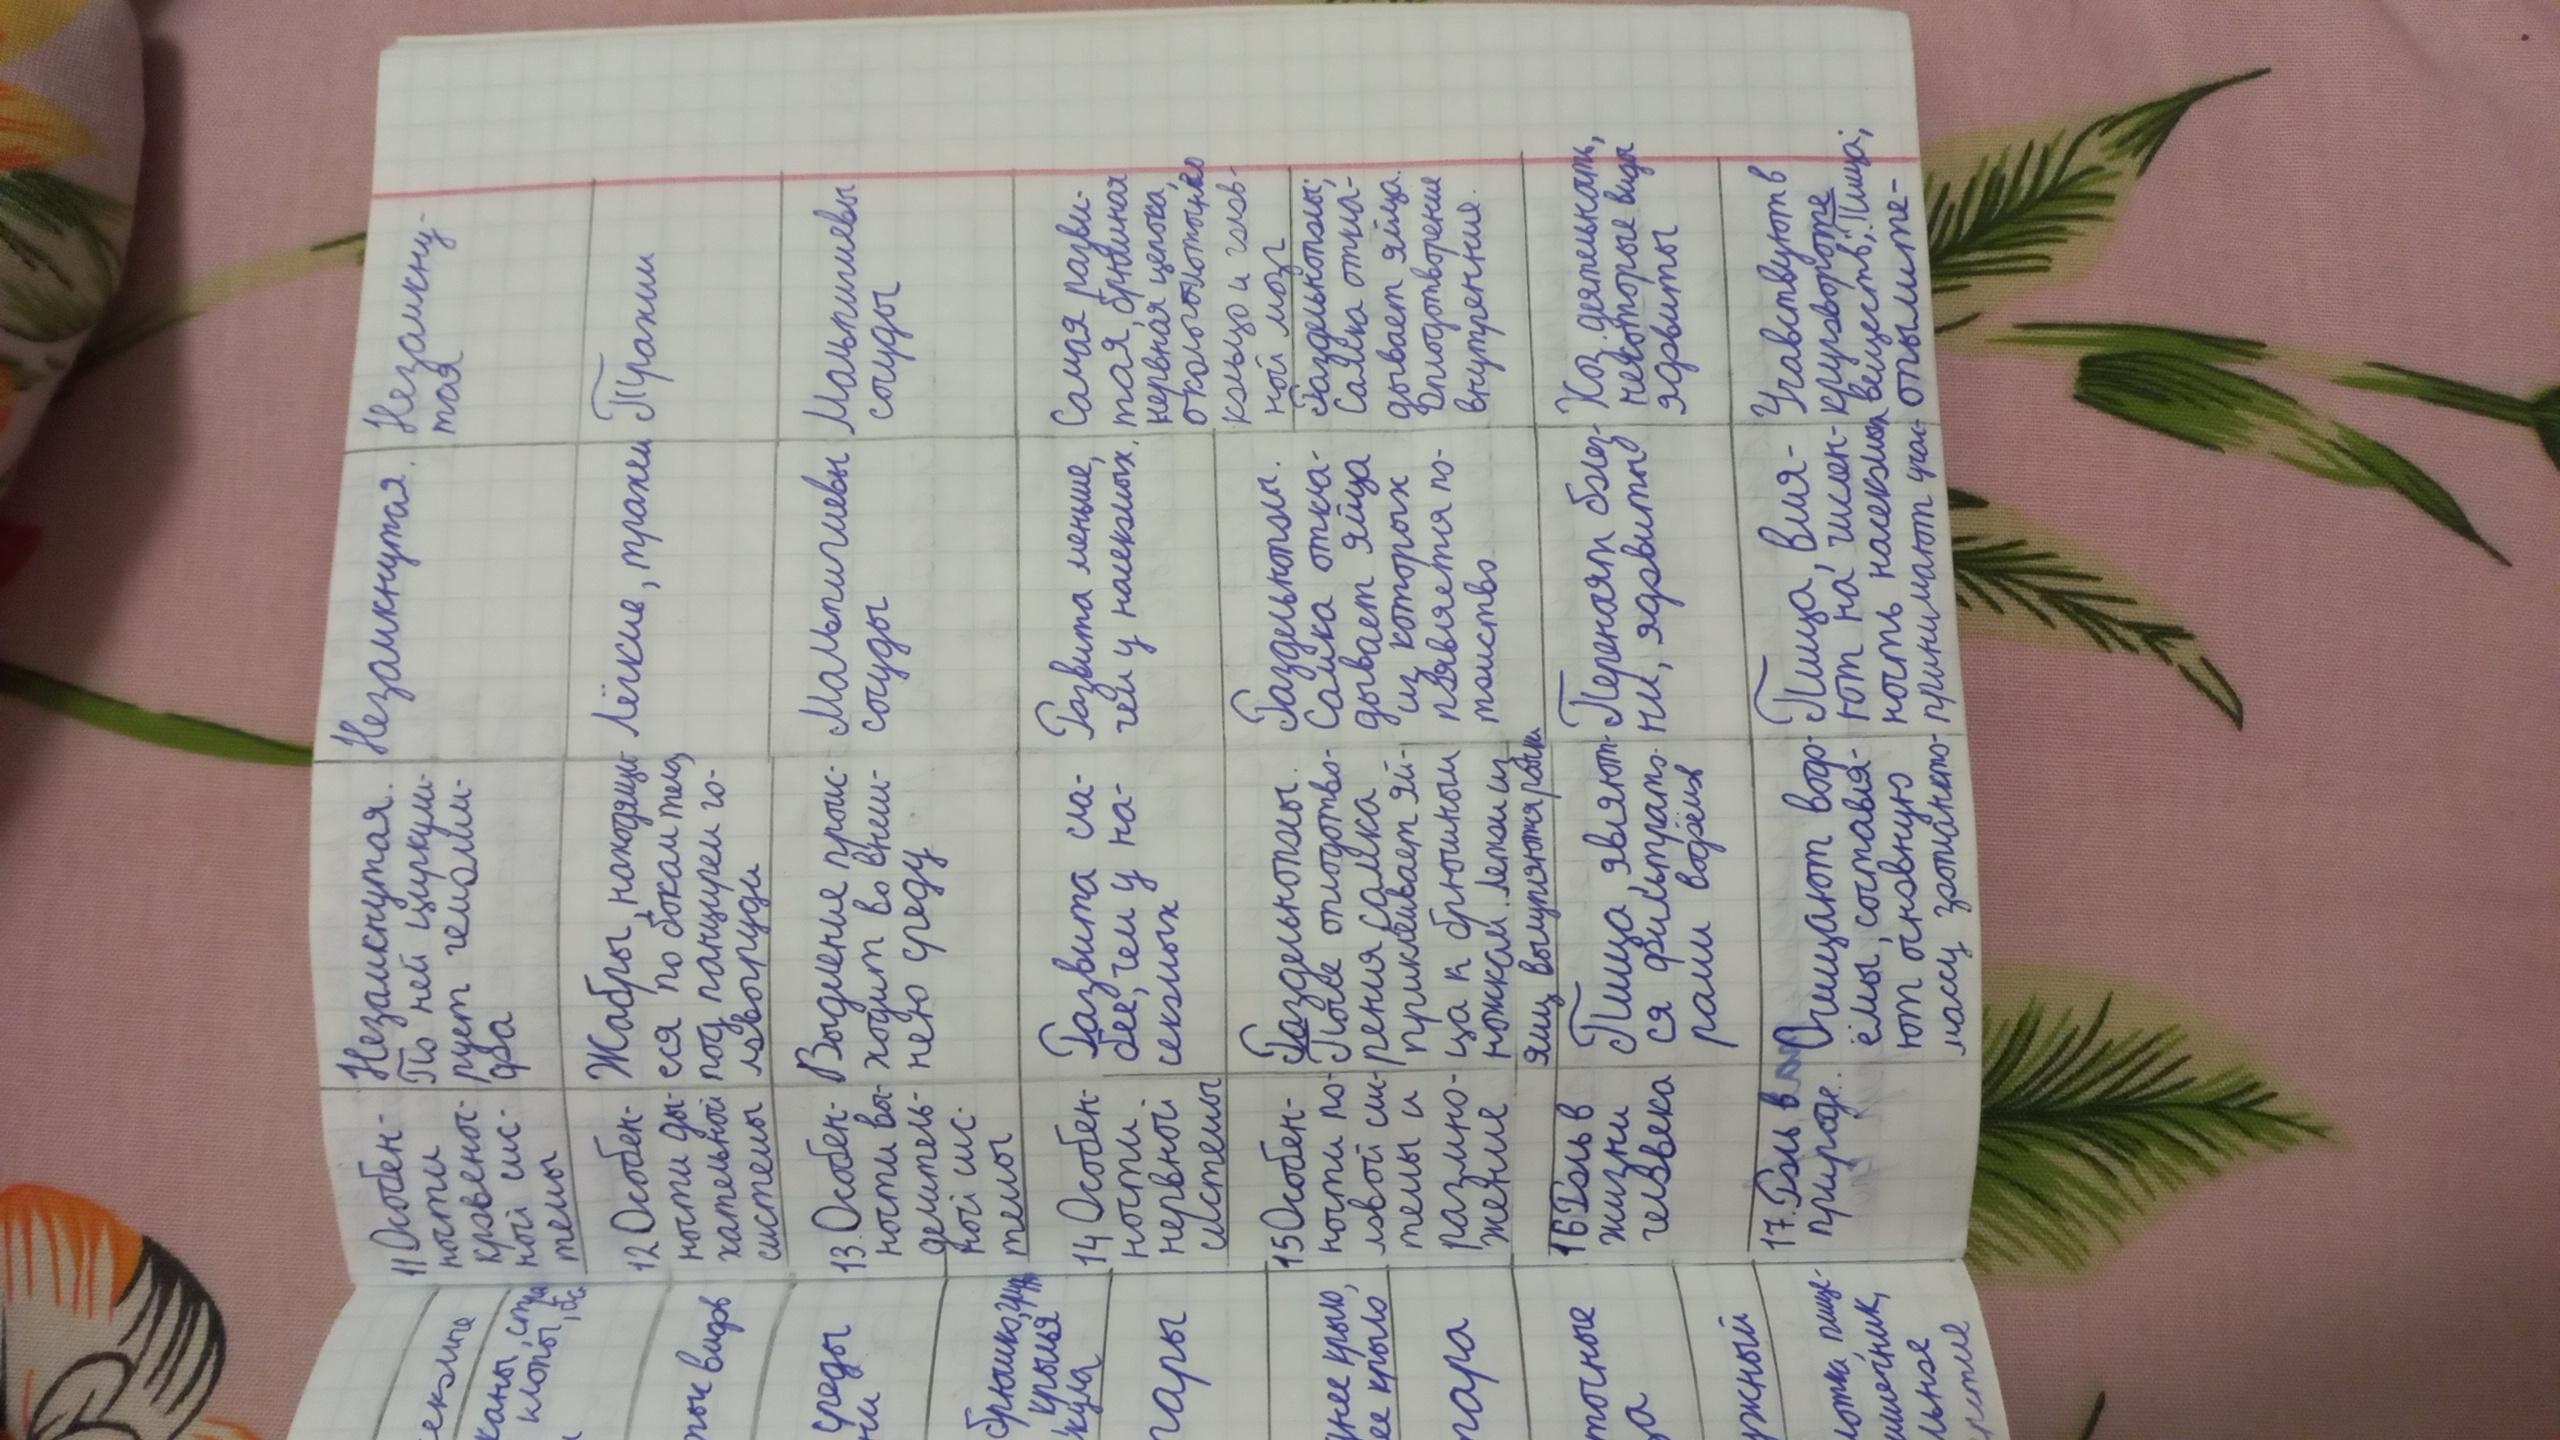 11 Особен-
ности
кровенос-
ной сис-
темы
Незамкнутая.
По ней циркули-
рует гемолим-
фа
Незамкнутая.
Незамкну-
тая
12 Особен-
ности ды-
хательной
системы
Жабры, находящи-
еся по бокам тела,
под панцирем го-
ловогруди
Лёгкие, трахеи
Трахеи
13. Особен-
ности вы-
делитель-
ной сис-
темы
Выделение проис-
ходит во внеш-
нею среду
Мальпигиевы
сосуды
Мальпигиевы
сосуды
14 Особен-
ности
нервной
системы
Развита сла-
бее, чем у на-
секомых
Развита меньше,
чем у насекомых.
Самая разви-
тая, брюшная
нервная цепочка,
окологлоточное
кольцо и голов-
ной мозг
15 Особен-
ности по-
ловой сис-
темы и
размно-
жение
Раздельнополы.
После оплодотво-
рения самка
приклеивает яй-
ца к брюшным
ножкам. Летом из
яиц вылупляются рачки
Раздельнополы.
Самка откла-
дывает яйца
из которых
появляется по-
томство
Раздельнополы;
Самка откла-
дывает яйца.
Оплодотворение
внутреннее.
16 Роль в
жизни
человека
Пища, являют-
ся фильтрато-
рами водоёмов
Переносят болез-
ни, ядовиты
Хоз. деятельность,
некоторые виды
ядовиты
17. Роль в
природе.
Очищают водо-
ёмы, составля-
ют основную
массу зоопланкто-
Пища, Влия-
ют на числен-
ность насекомых
принимают учас-
Учавствуют в
круговороте
веществ; Пища;
опылите-
екомые
каны,
клопы,
тых видов
среды
ни
брюшко,
крылья
кула
пары
нее крыло,
ее крыло
пара
точные
за
ужный
лотка, пище-
ишечник,
льное
рстие